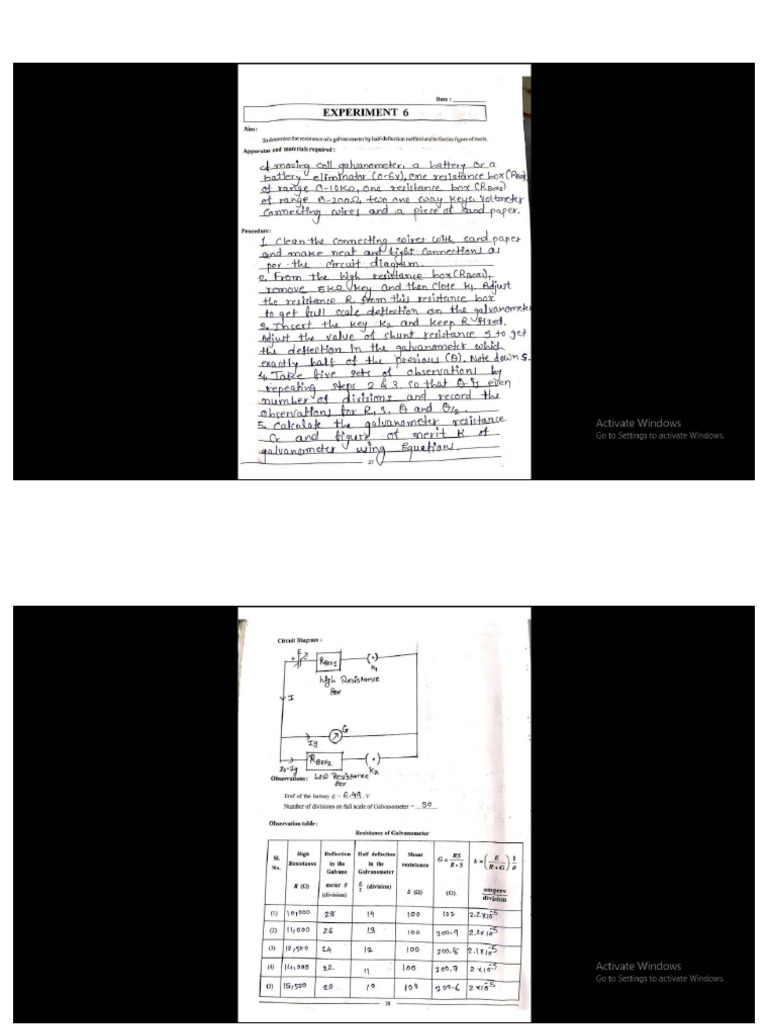 Date : ________
EXPERIMENT 6
Aim :
To determine the resistance of a galvanometer by half-deflection method and to find its figure of merit.
Apparatus and materials required :
A moving coil galvanometer, a battery or a
battery eliminator (0-6V), one resistance box (RBOX1)
of range 0-10KΩ, one resistance box (RBOX2)
of range 0-200Ω, two one way keys, voltmeter
connecting wires and a piece of sand paper.
Procedure :
1. Clean the connecting wires with sand paper
and make neat and tight connections as
per the circuit diagram.
2. From the high resistance box (RBOX1),
remove 5KΩ key and then close K1. Adjust
the resistance R from this resistance box
to get full scale deflection on the galvanometer
3. Insert the key K2 and keep R fixed.
Adjust the value of shunt resistance S to get
the deflection in the galvanometer which
exactly half of the previous (θ). Note down S.
4. Take five sets of observations by
repeating steps 2 & 3 so that θ is even
number of divisions and record the
observations for R, S, θ and θ/2.
5. Calculate the galvanometer resistance
G and figure of merit K of
galvanometer using Equations.
27
Activate Windows
Go to Settings to activate Windows.
Circuit Diagram :
+ E
RBOX1 (•) K1
high Resistance
Box
I
G
Ig
RBOX2 (•) K2
Low Resistance
Box
Observations :
Emf of the battery E = 6.49 V
Number of divisions on full scale of Galvanometer = 30
Observation table :
Resistance of Galvanometer
Sl. No. | High Resistance R (Ω) | Deflection in the Galvano meter θ (division) | Half deflection in the Galvanometer θ/2 (division) | Shunt resistance S (Ω) | G = RS/R-S (Ω). | k = (E/R+G) 1/θ ampere/division
(1) 10,000 28 14 100 102 2.2×10⁻⁵
(2) 11,000 26 13 100 200.9 2.2×10⁻⁵
(3) 12,500 24 12 100 200.8 2.1×10⁻⁵
(4) 14,000 22 11 100 200.7 2×10⁻⁵
(5) 15,500 20 10 100 200.6 2×10⁻⁵
28
Activate Windows
Go to Settings to activate Windows.